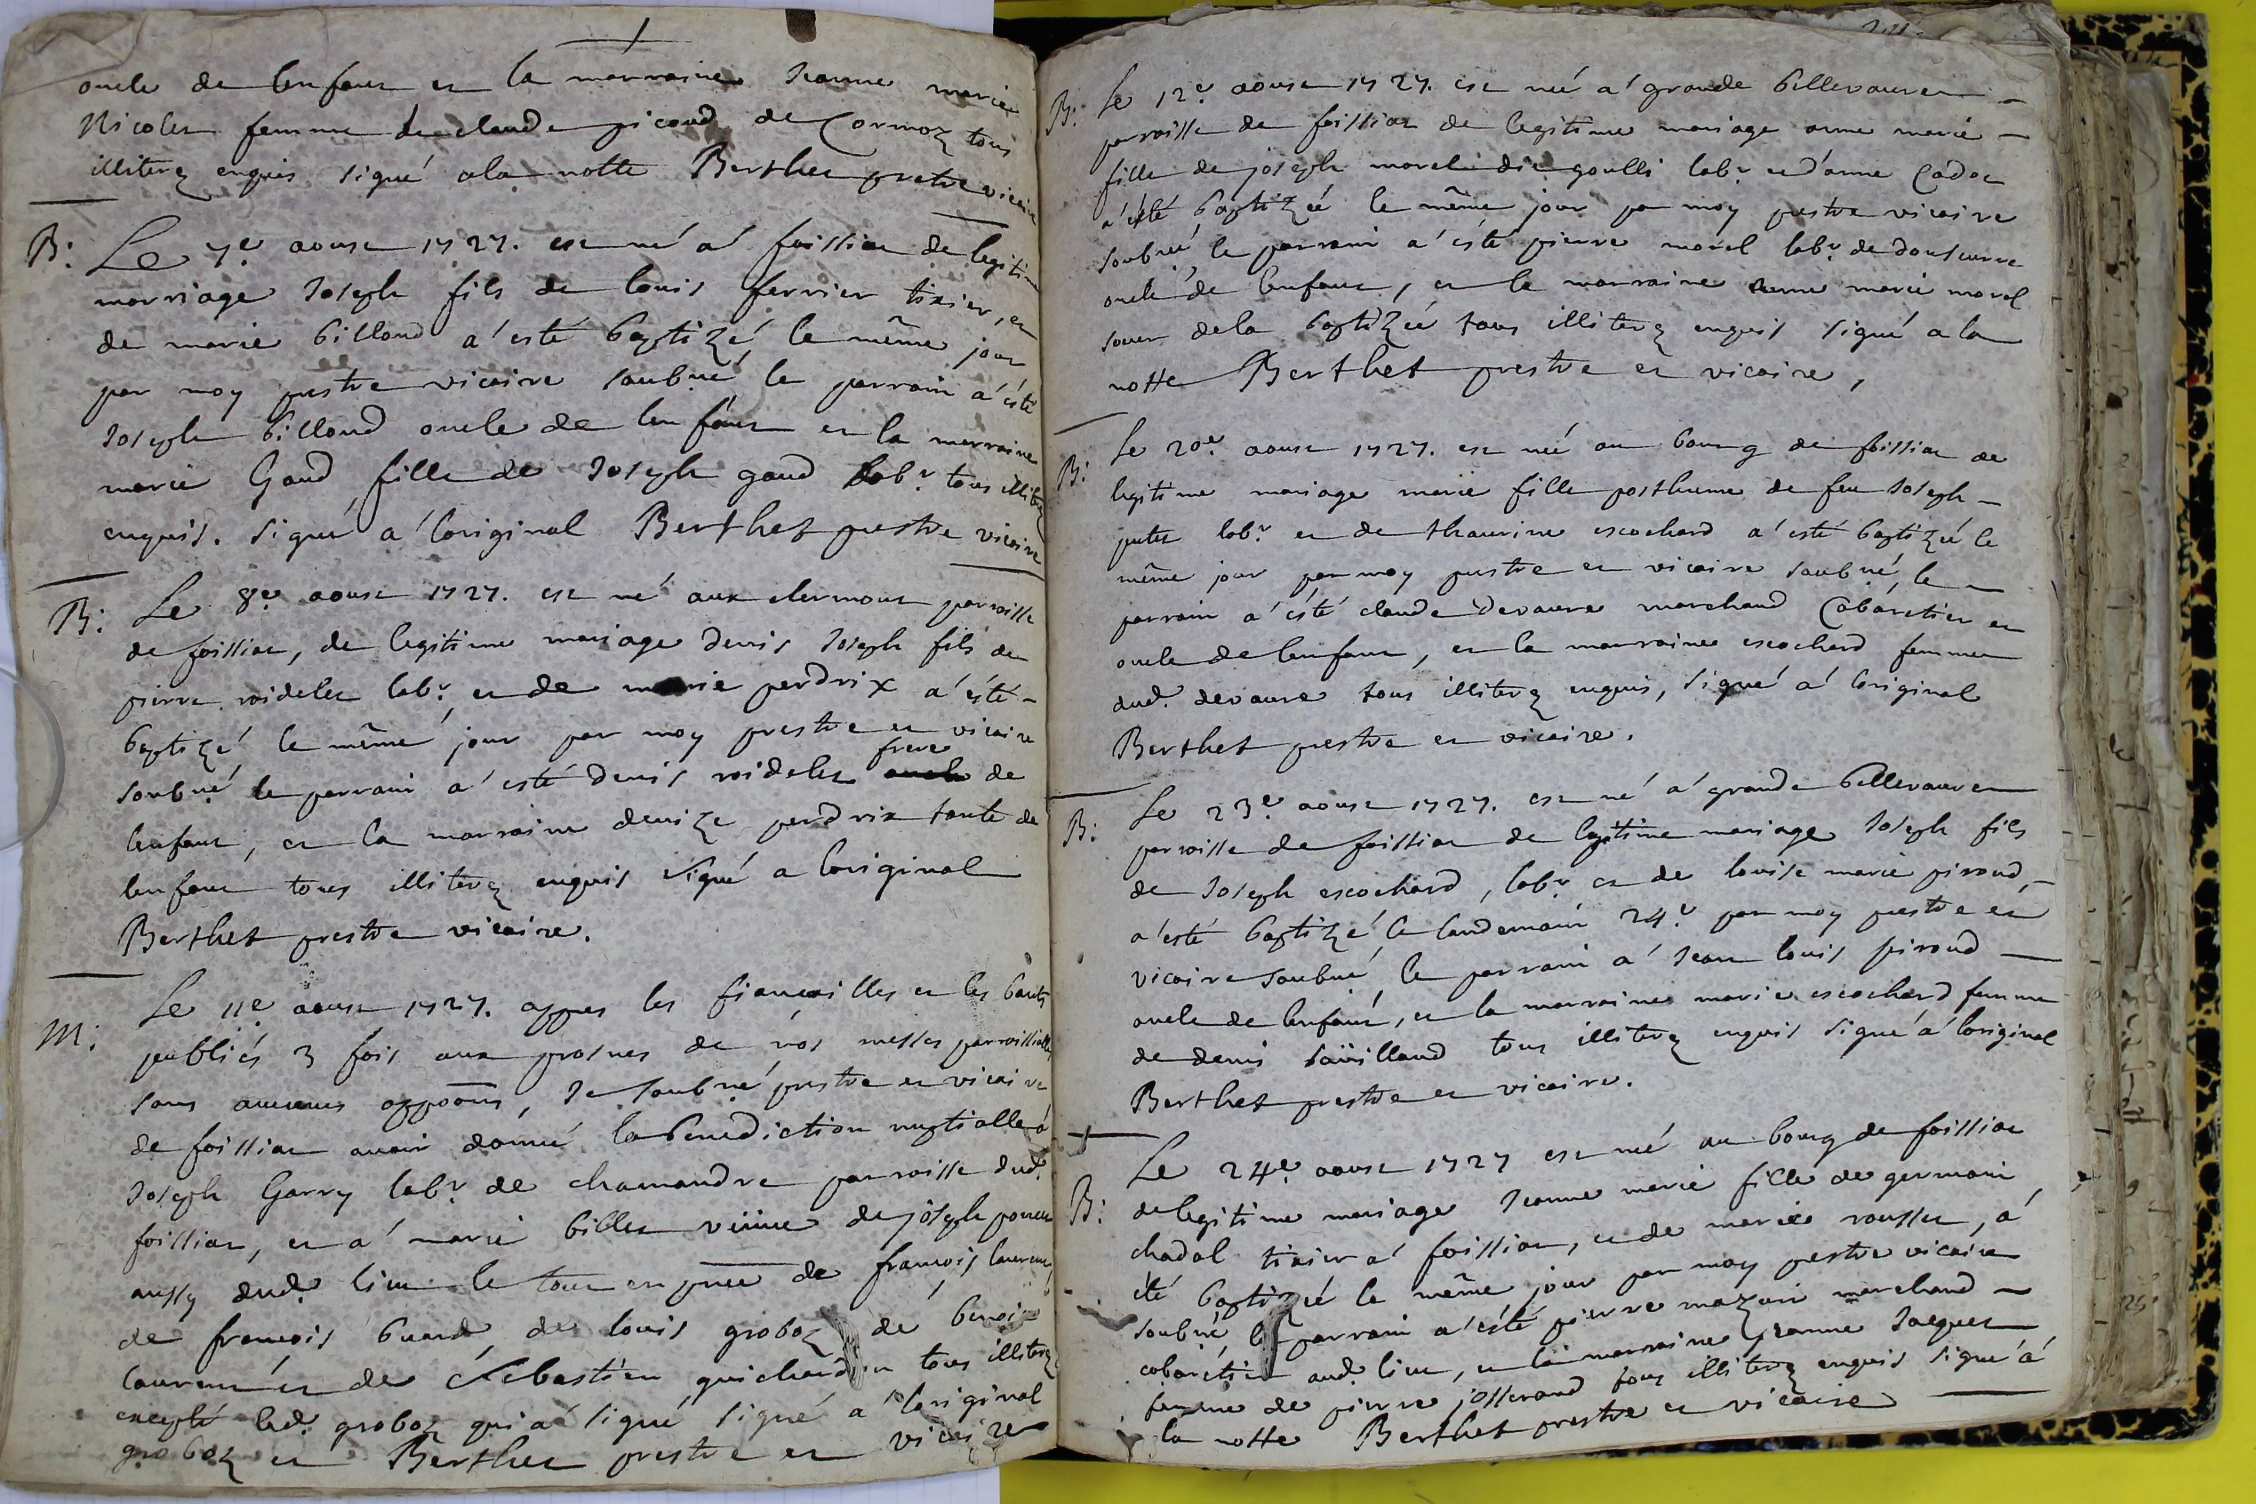 oncle de lenfant et la marraine Jeanne marie
Nicolet femme de claude picaud de Cormoz tous
illiterez enquis signé ala notte Berthet prestre vicaire
B: Le 7e aoust 1727. est né a foissiat de legitime
marriage Joseph fils de louis ferrier tixier, et
de marie billoud a'esté baptizé le même jour
par moy prestre vicaire soubné le parrain a'ésté
Joseph billoud oncle de lenfant et la marraine
marie Gaud fille de Joseph gaud labr tous illiterez
enquis. signé a l'original Berthet prestre vicaire
B: Le 8e aoust 1727. est né aux clermont parroisse
de foissiat, de legitime mariage denis Joseph fils de
pierre ridelet labr et de marie perdrix a'ésté
baptizé le même jour par moy prestre et vicaire
soubné le parrain a'esté denis ridelet frere de
lenfant, et la marraine denize perdrix tante de
lenfant tous illiterez enquis signé a loriginal
Berthet prestre vicaire.
M: Le 11e aoust 1727. appres les fiancailles et les bants
publiés 3 fois aux prosnes de nos messes parroissialles
sans aucunes oppoons, Je soubné prestre et vicaire
de foissiat avoir donné la benediction nuptialle a
Joseph Garry labr de chamandre parroisse dud.
foissiat, et a' marie billet veüve de joseph poncet
aussy dud. lieu le tout en pnce de françois laurent,
de françois buard, de louis groboz de benoit
laurent et de Sebastien guichardon tous illiterez
excepté led. groboz qui a signé signé a loriginal
groboz et Berthet prestre et vicaire
B: Le 12e aoust 1727. est née a' grande billevauret
parroisse de foissiat de legitime mariage anne marie
fille de joseph morel dit goulli labr et d'anne Cadot
a'esté baptizée le même jour par moy prestre vicaire
soubné, le parrain a'ésté pierre morel labr de donsurre
oncle de lenfant, et la marraine anne marie morel
soeur dela baptizée tous illiterez enquis signé a la
notte Berthet prestre et vicaire,
B: Le 20e aoust 1727. est née au bourg de foissiat de
legitime mariage marie fille posthume de feu Joseph
putet labr et de thaurine escochard a'esté baptizée le
même jour par moy prestre et vicaire soubné, le
parrain a'ésté claude devaure marchand Cabaretier et
oncle de lenfant, et la marraine escochard femme
dud. devaure tous illiterez enquis, signé a' loriginal
Berthet prestre et vicaire.
B: Le 23e aoust 1727. est né a' grande billevauret
parroisse de foissiat de legitime mariage Joseph fils
de Joseph escochard, labr et de louise marie piroud,
a'esté baptizé le landemain 24e par moy prestre et
vicaire soubné, le parrain a' Jean louis piroud
oncle de lenfant, et la marraine marie escochard femme
de denis saüilland tous illiterez enquis signé a' loriginal
Berthet prestre et vicaire.
B: Le 24e aoust 1727 est née au bourg de foissiat
de legitime mariage Jeanne marie fille de germain
chadal tixier a' foissiat, et de marie rousset, a'
été baptizée le même jour par moy prestre vicaire
soubné le parrain a'ésté pierre mazuir marchand
cabaretier aud. lieu, et la marraine jeanne Jacquet
femme de pierre josserand tous illiterez enquis signé a'
la notte Berthet prestre et vicaire